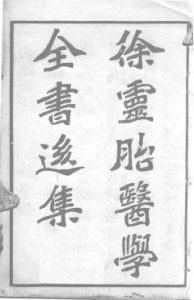 徐靈胎醫學
全書送集